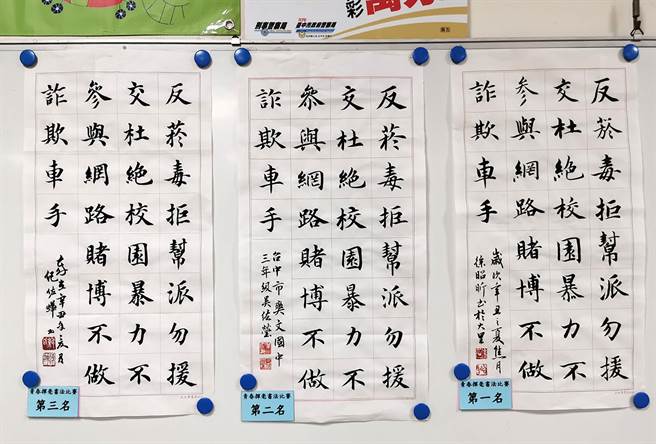 刑事警察局
臺中市政府警察局
反菸毒拒幫派勿援
交杜絕校園暴力不
参與網路賭博不做
詐欺車手
歲次辛丑之夏焦月
徐昭昕書於大里
青春揮毫書法比賽
第一名
反菸毒拒幫派勿援
交杜絕校園暴力不
叅與網路賭博不做
詐欺車手
台中市爽文國中
三年級吳佳
青春揮毫書法比賽
第二名
反菸毒拒幫派勿援
交杜絕校園暴力不
參與網路賭博不做
詐欺車手
青春揮毫書法比賽
第三名